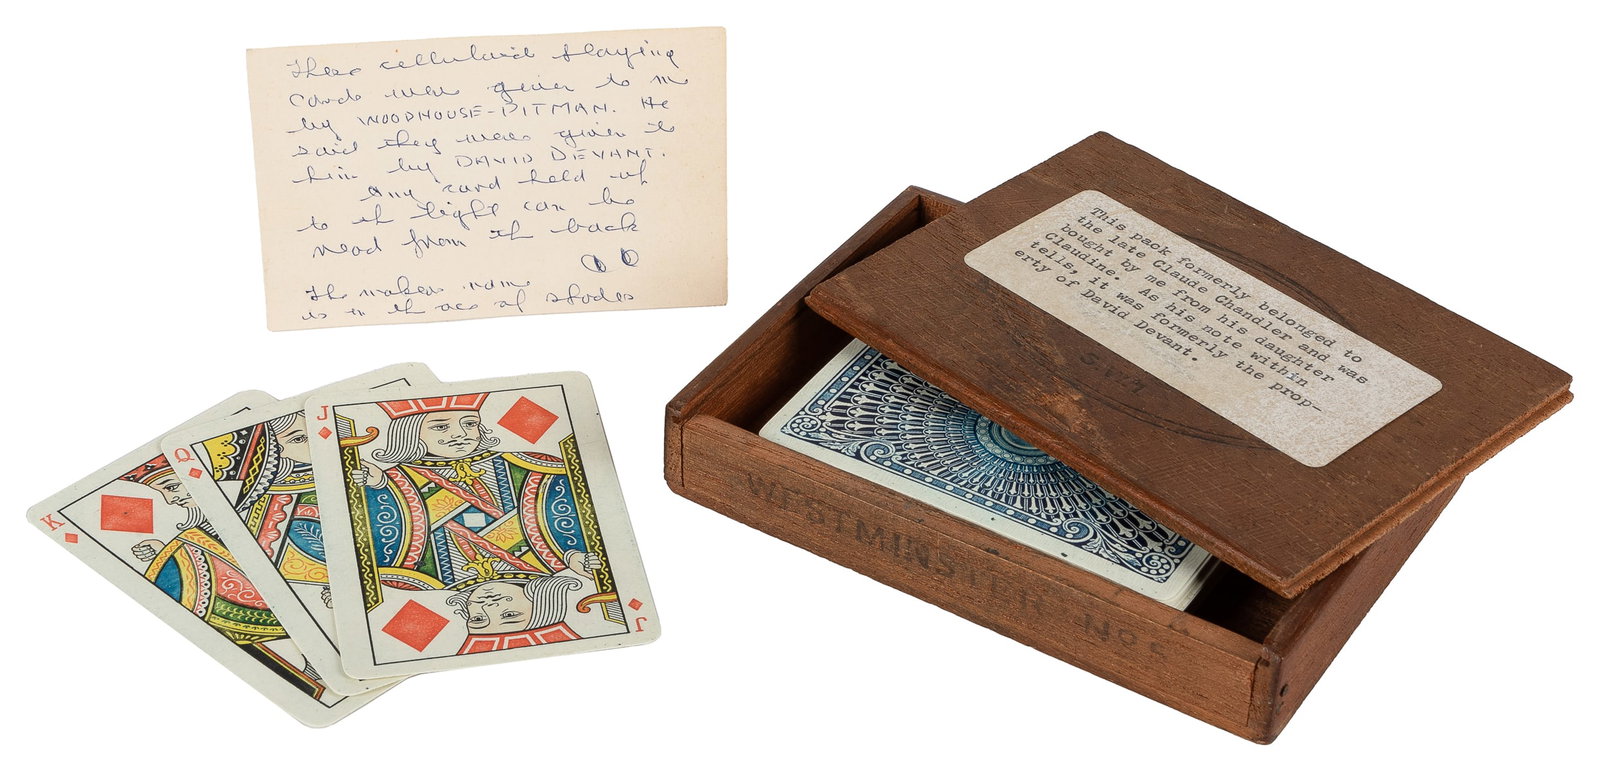 These celluloid playing
cards were given to me
by WOODHOUSE-PITMAN. He
said they were given to
him by DAVID DEVANT.
Any card held up
to the light can be
read from the back
The makers name
is on the ace of spades
This pack formerly belonged to
the late Claude Chandler and was
bought by me from his daughter
Claudine. As his note within
tells, it was formerly the prop-
erty of David Devant.
WESTMINSTER No
K
Q
J
J